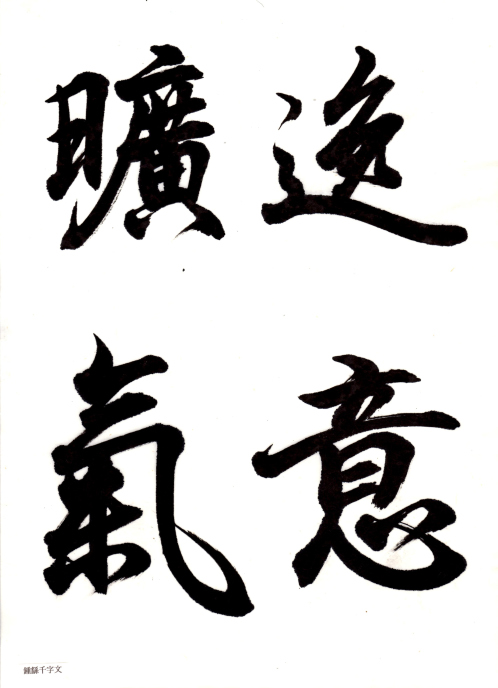 逸意
曠氣
鍾繇千字文